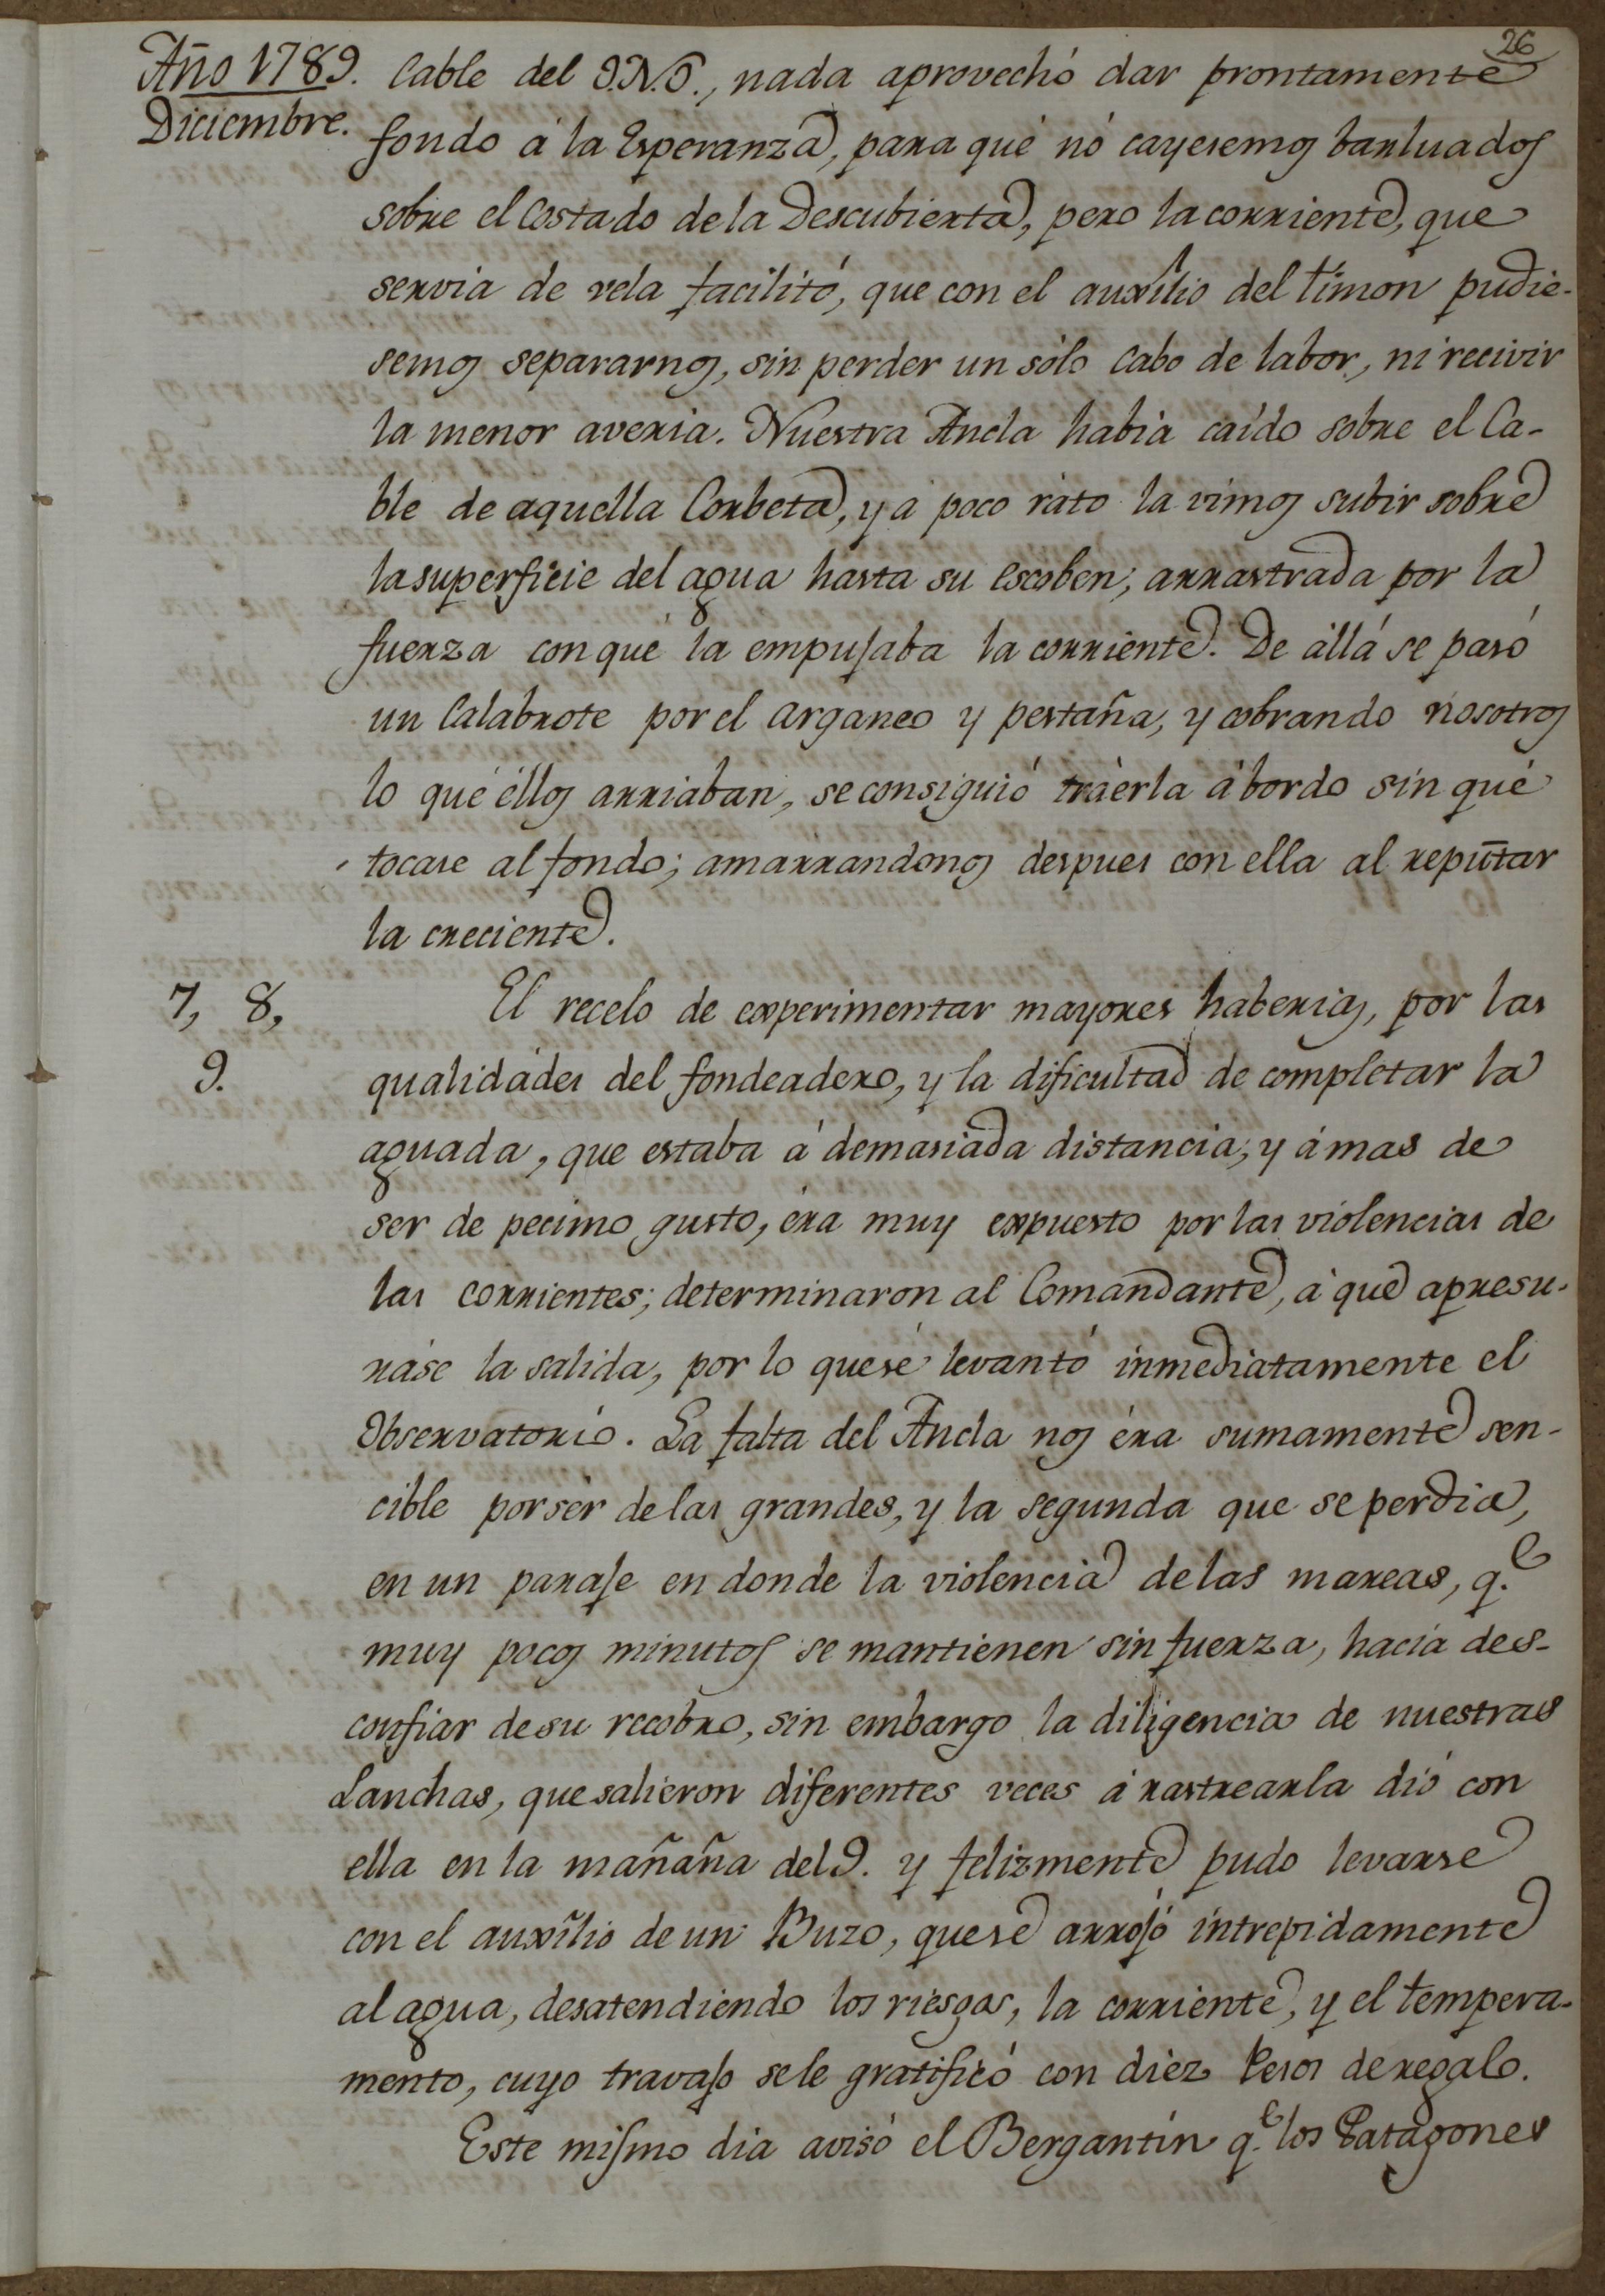 26
Año 1789.
Diciembre.
Cable del S.N.O., nada aprovechó dar prontamente
fondo á la Esperanza, para qué nó cayesemos barluados
sobre el Costado de la Descubierta, pero la corriente, que
servia de vela facilitó, que con el auxîlio del timon pudie-
semos separarnos, sin perder un sólo Cabo de labor, ni recivir
la menor averia. Nuestra Ancla habia caído sobre el Ca-
ble de aquella Corbeta, y á poco ráto la vimos subir sobre
la superficie del agua hasta su Escoben; arrastrada por la
fuerza con qué la empujaba la corriente. De állá se pasó
un Calabrote por el arganeo y pestaña, y cobrando nosotros
lo qué éllos arriaban, se consiguió tráerla ábordo sin qué
tocase al fondo; amarrandonos despues con ella al repuntar
la creciente.
7, 8,
9.
El recelo de experimentar mayores haberias, por las
qualidádes del fondeadero, y la dificultad de completar la
aguada, que estaba á demasiada distancia; y ámas de
ser de pecimo gusto, éra muy expuesto por las violencias de
las corrientes; determinaron al Comandante, á que apresu-
ráse la salida, por lo que sé levantó inmediatamente el
Observatorio. La falta del Ancla nos éra sumamente sen-
cible por sér de las grandes, y la segunda que se perdia,
en un paraje en donde la violencia de las mareas, q.e
muy pocos minutos se mantienen sin fuerza, hacia des-
confiar de su recobro, sin embargo la diligencia de nuestras
Lanchas, que salieron diferentes veces á rastrearla dió con
ella en la mañaña del 9. y felizmente pudo levarse
con el auxîlio de un Buzo, que se arrojó intrepidamente
al agua, desatendiendo los riesgos, la corriente, y el tempera-
mento, cuyo travajo se le gratificó con diez Pesos de regalo.
Este mismo dia avisó el Bergantin q.e los Patagones